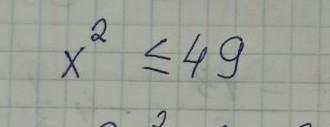 x² ≤ 49